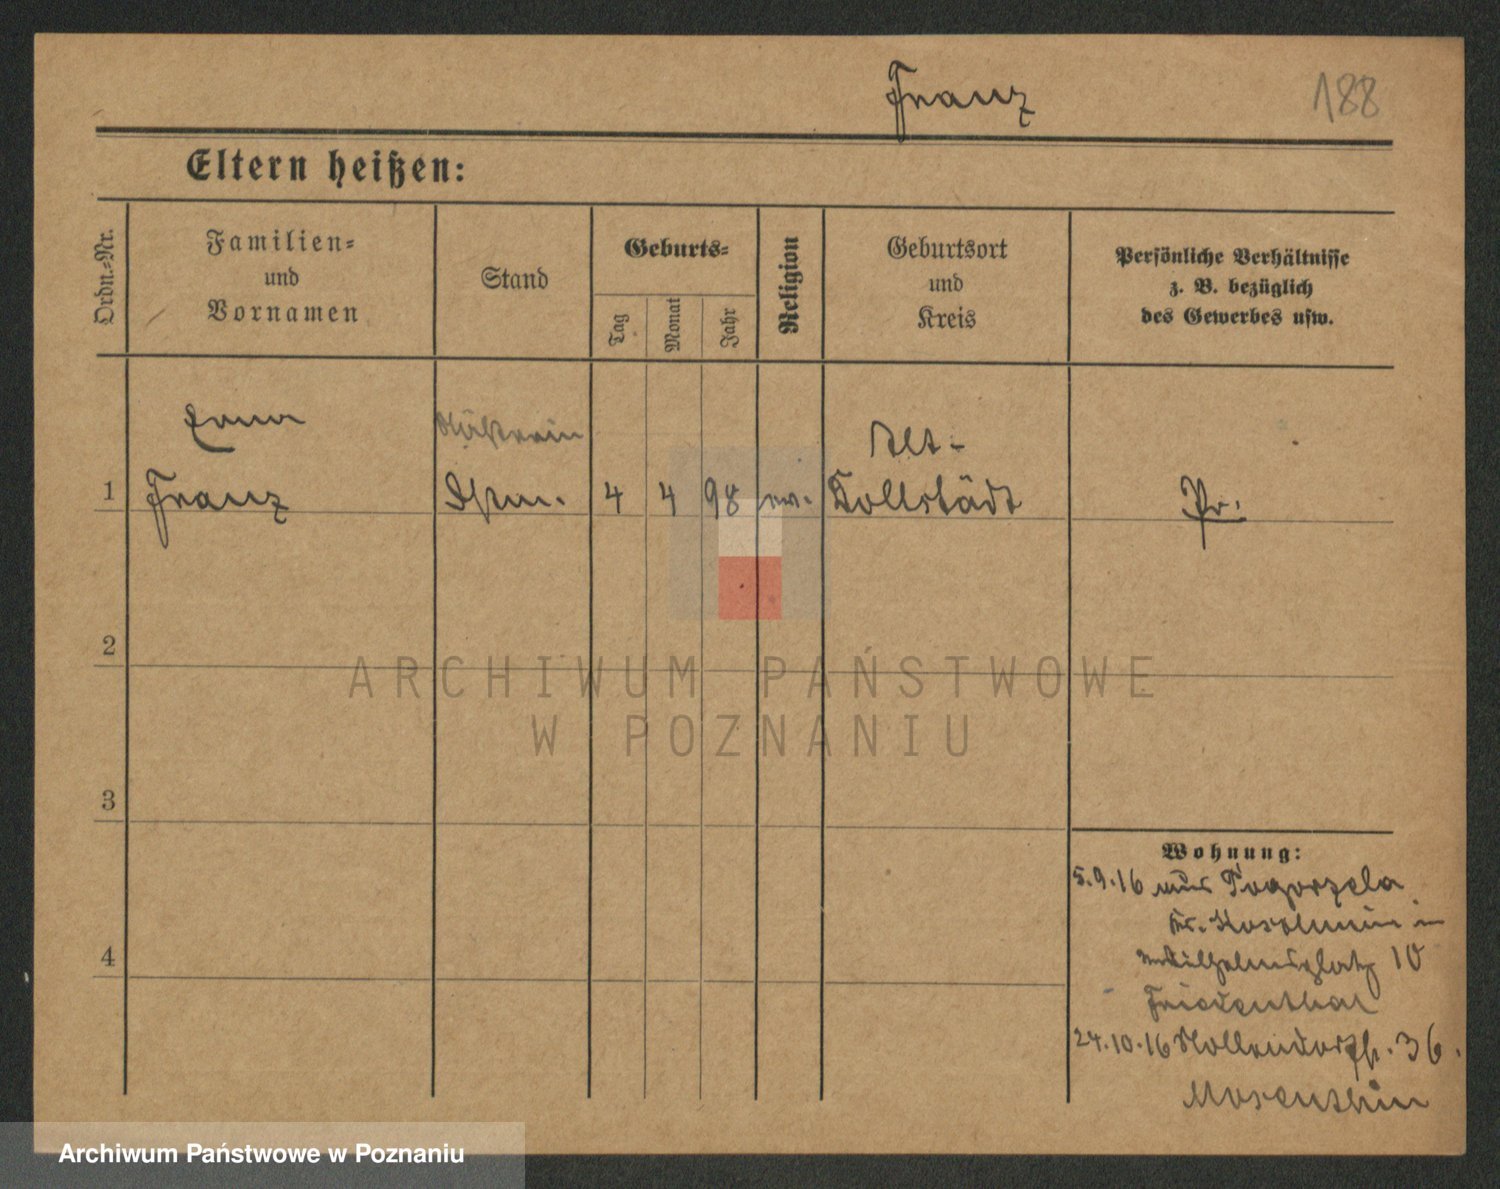 Franz 188
Eltern heißen:
Ordn.=Nr.
Familien=
und
Vornamen
Stand
Geburts=
Tag
Monat
Jahr
Religion
Geburtsort
und
Kreis
Persönliche Verhältnisse
z. B. bezüglich
des Gewerbes usw.
Erna
Näherin
Alt-
1 Franz 4 4 98 ev. Kollstädt Pr.
2
3
4
Wohnung:
5.9.16 aus Pogorzela
Kr. Koschmin in
Wilhelmsplatz 10
Friedenthal
24.10.16 Nollendorfstr. 36.
Mosenthin
ARCHIWUM PAŃSTWOWE
W POZNANIU
Archiwum Państwowe w Poznaniu